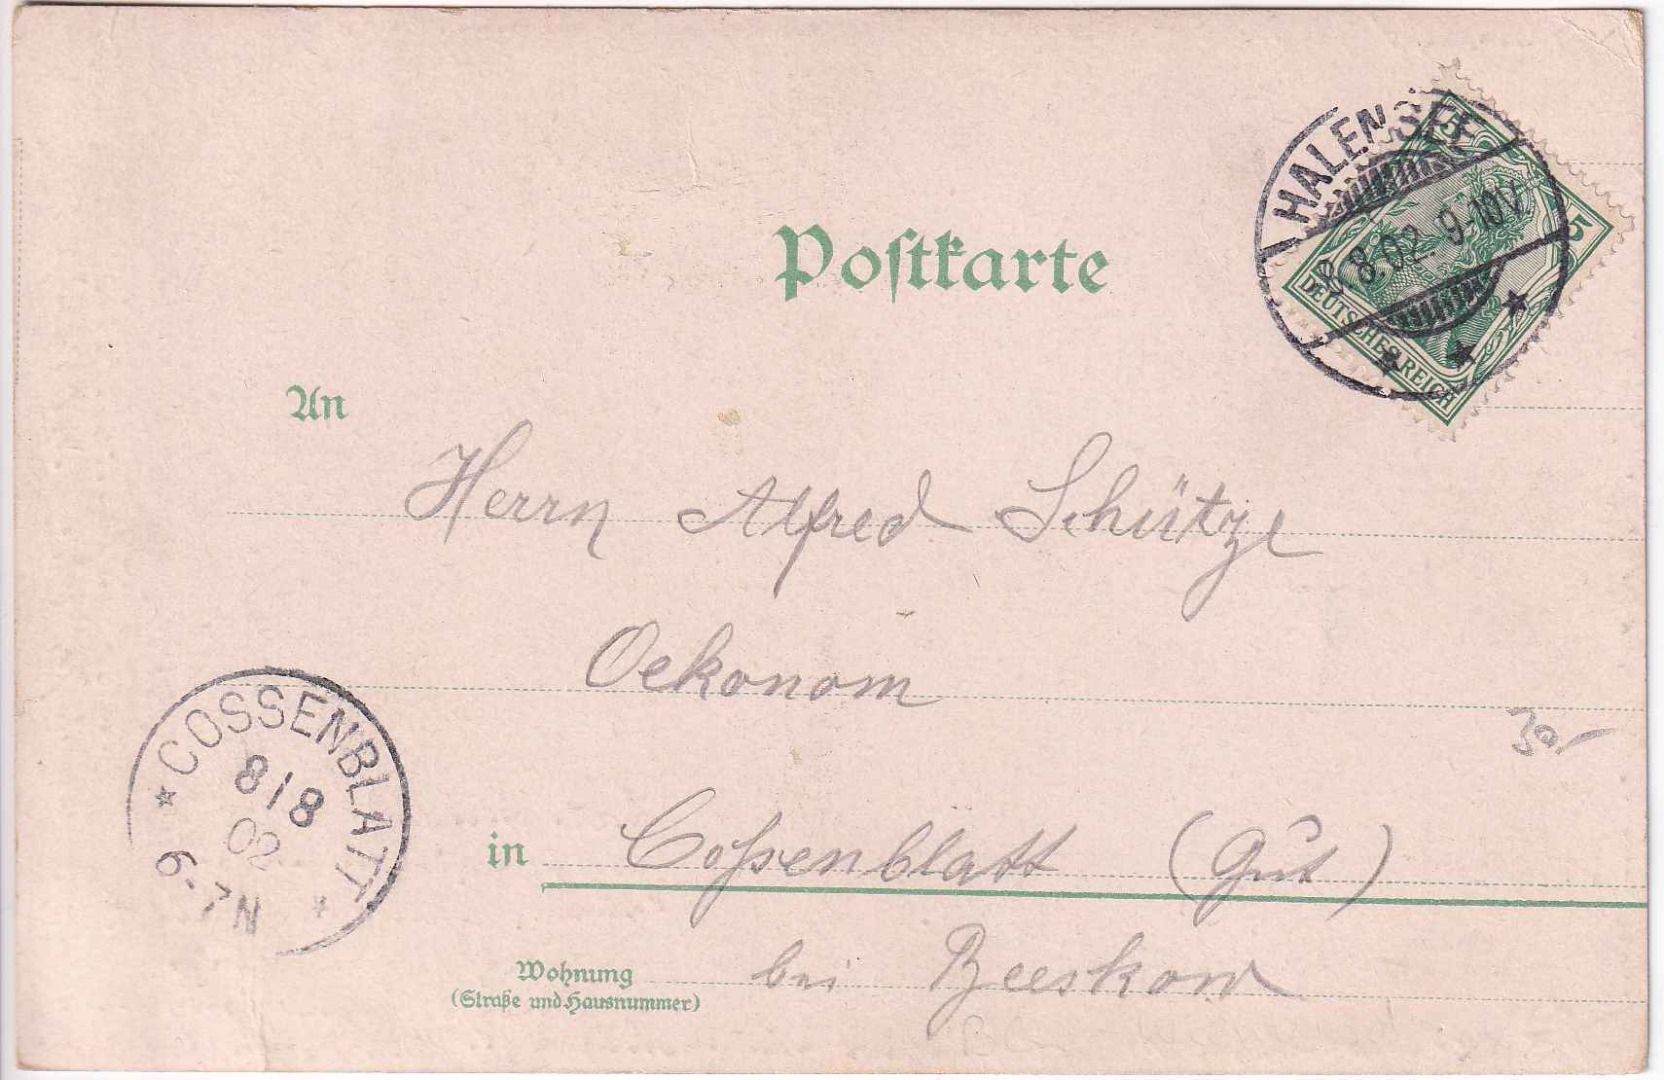 HALENSEE
8.8.02. 9-10V.
5
5
DEUTSCHES REICH
Postkarte
An
Herrn Alfred Schütze
Oekonom
30,-
COSSENBLATT
8/8
02
6-7N
in Cossenblatt (Gut)
Wohnung
(Straße und Hausnummer)
bei Beeskow